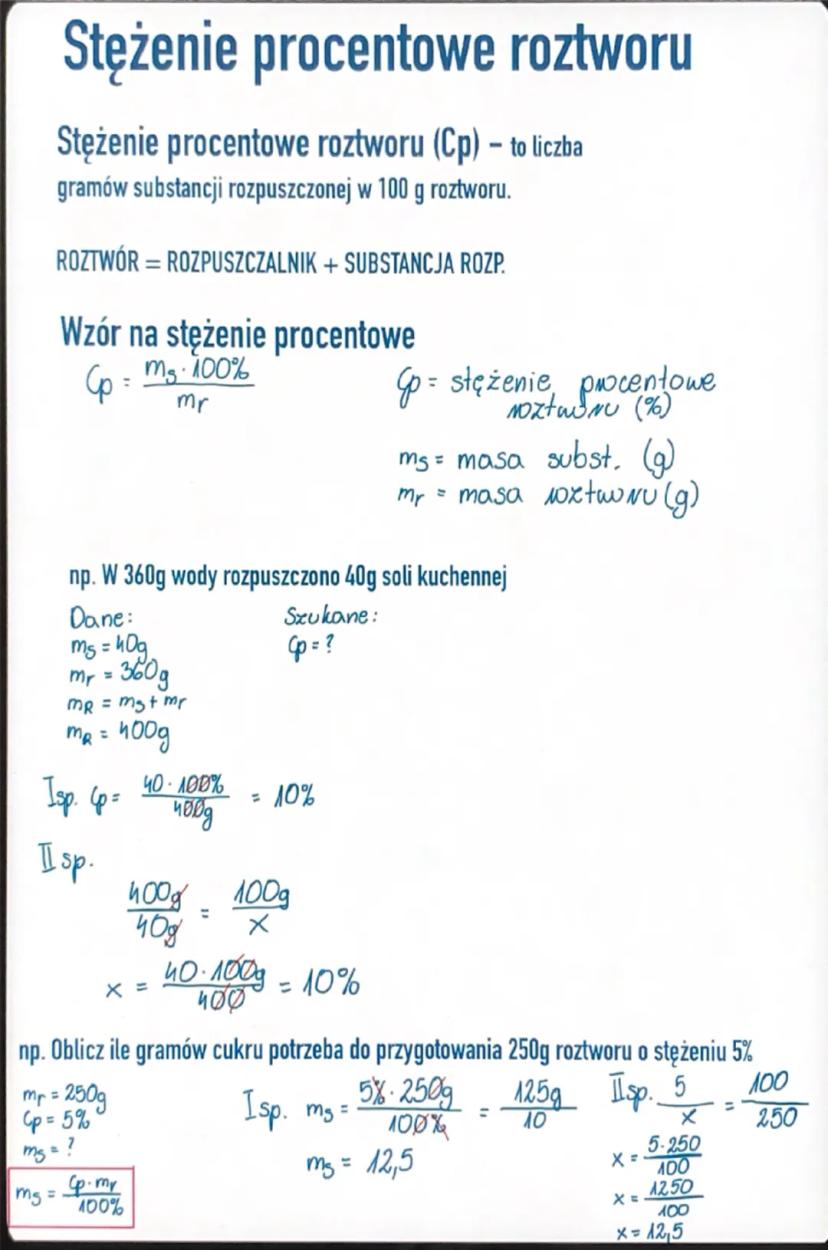 Stężenie procentowe roztworu
Stężenie procentowe roztworu (Cp) – to liczba
gramów substancji rozpuszczonej w 100 g roztworu.
ROZTWÓR = ROZPUSZCZALNIK + SUBSTANCJA ROZP.
Wzór na stężenie procentowe
Cp = ms · 100% / mr
Cp = stężenie procentowe
roztworu (%)
ms = masa subst. (g)
mr = masa roztworu (g)
np. W 360g wody rozpuszczono 40g soli kuchennej
Dane: Szukane:
ms = 40g Cp = ?
mr = 360g
mR = ms + mr
mR = 400g
I sp. Cp = 40 · 100% / 400g = 10%
II sp.
400g / 40g = 100g / x
x = 40 · 100g / 400 = 10%
np. Oblicz ile gramów cukru potrzeba do przygotowania 250g roztworu o stężeniu 5%
mr = 250g
Cp = 5%
ms = ?
ms = Cp · mr / 100%
I sp. ms = 5% · 250g / 100% = 125g / 10
ms = 12,5
II sp. 5 / x = 100 / 250
x = 5 · 250 / 100
x = 1250 / 100
x = 12,5